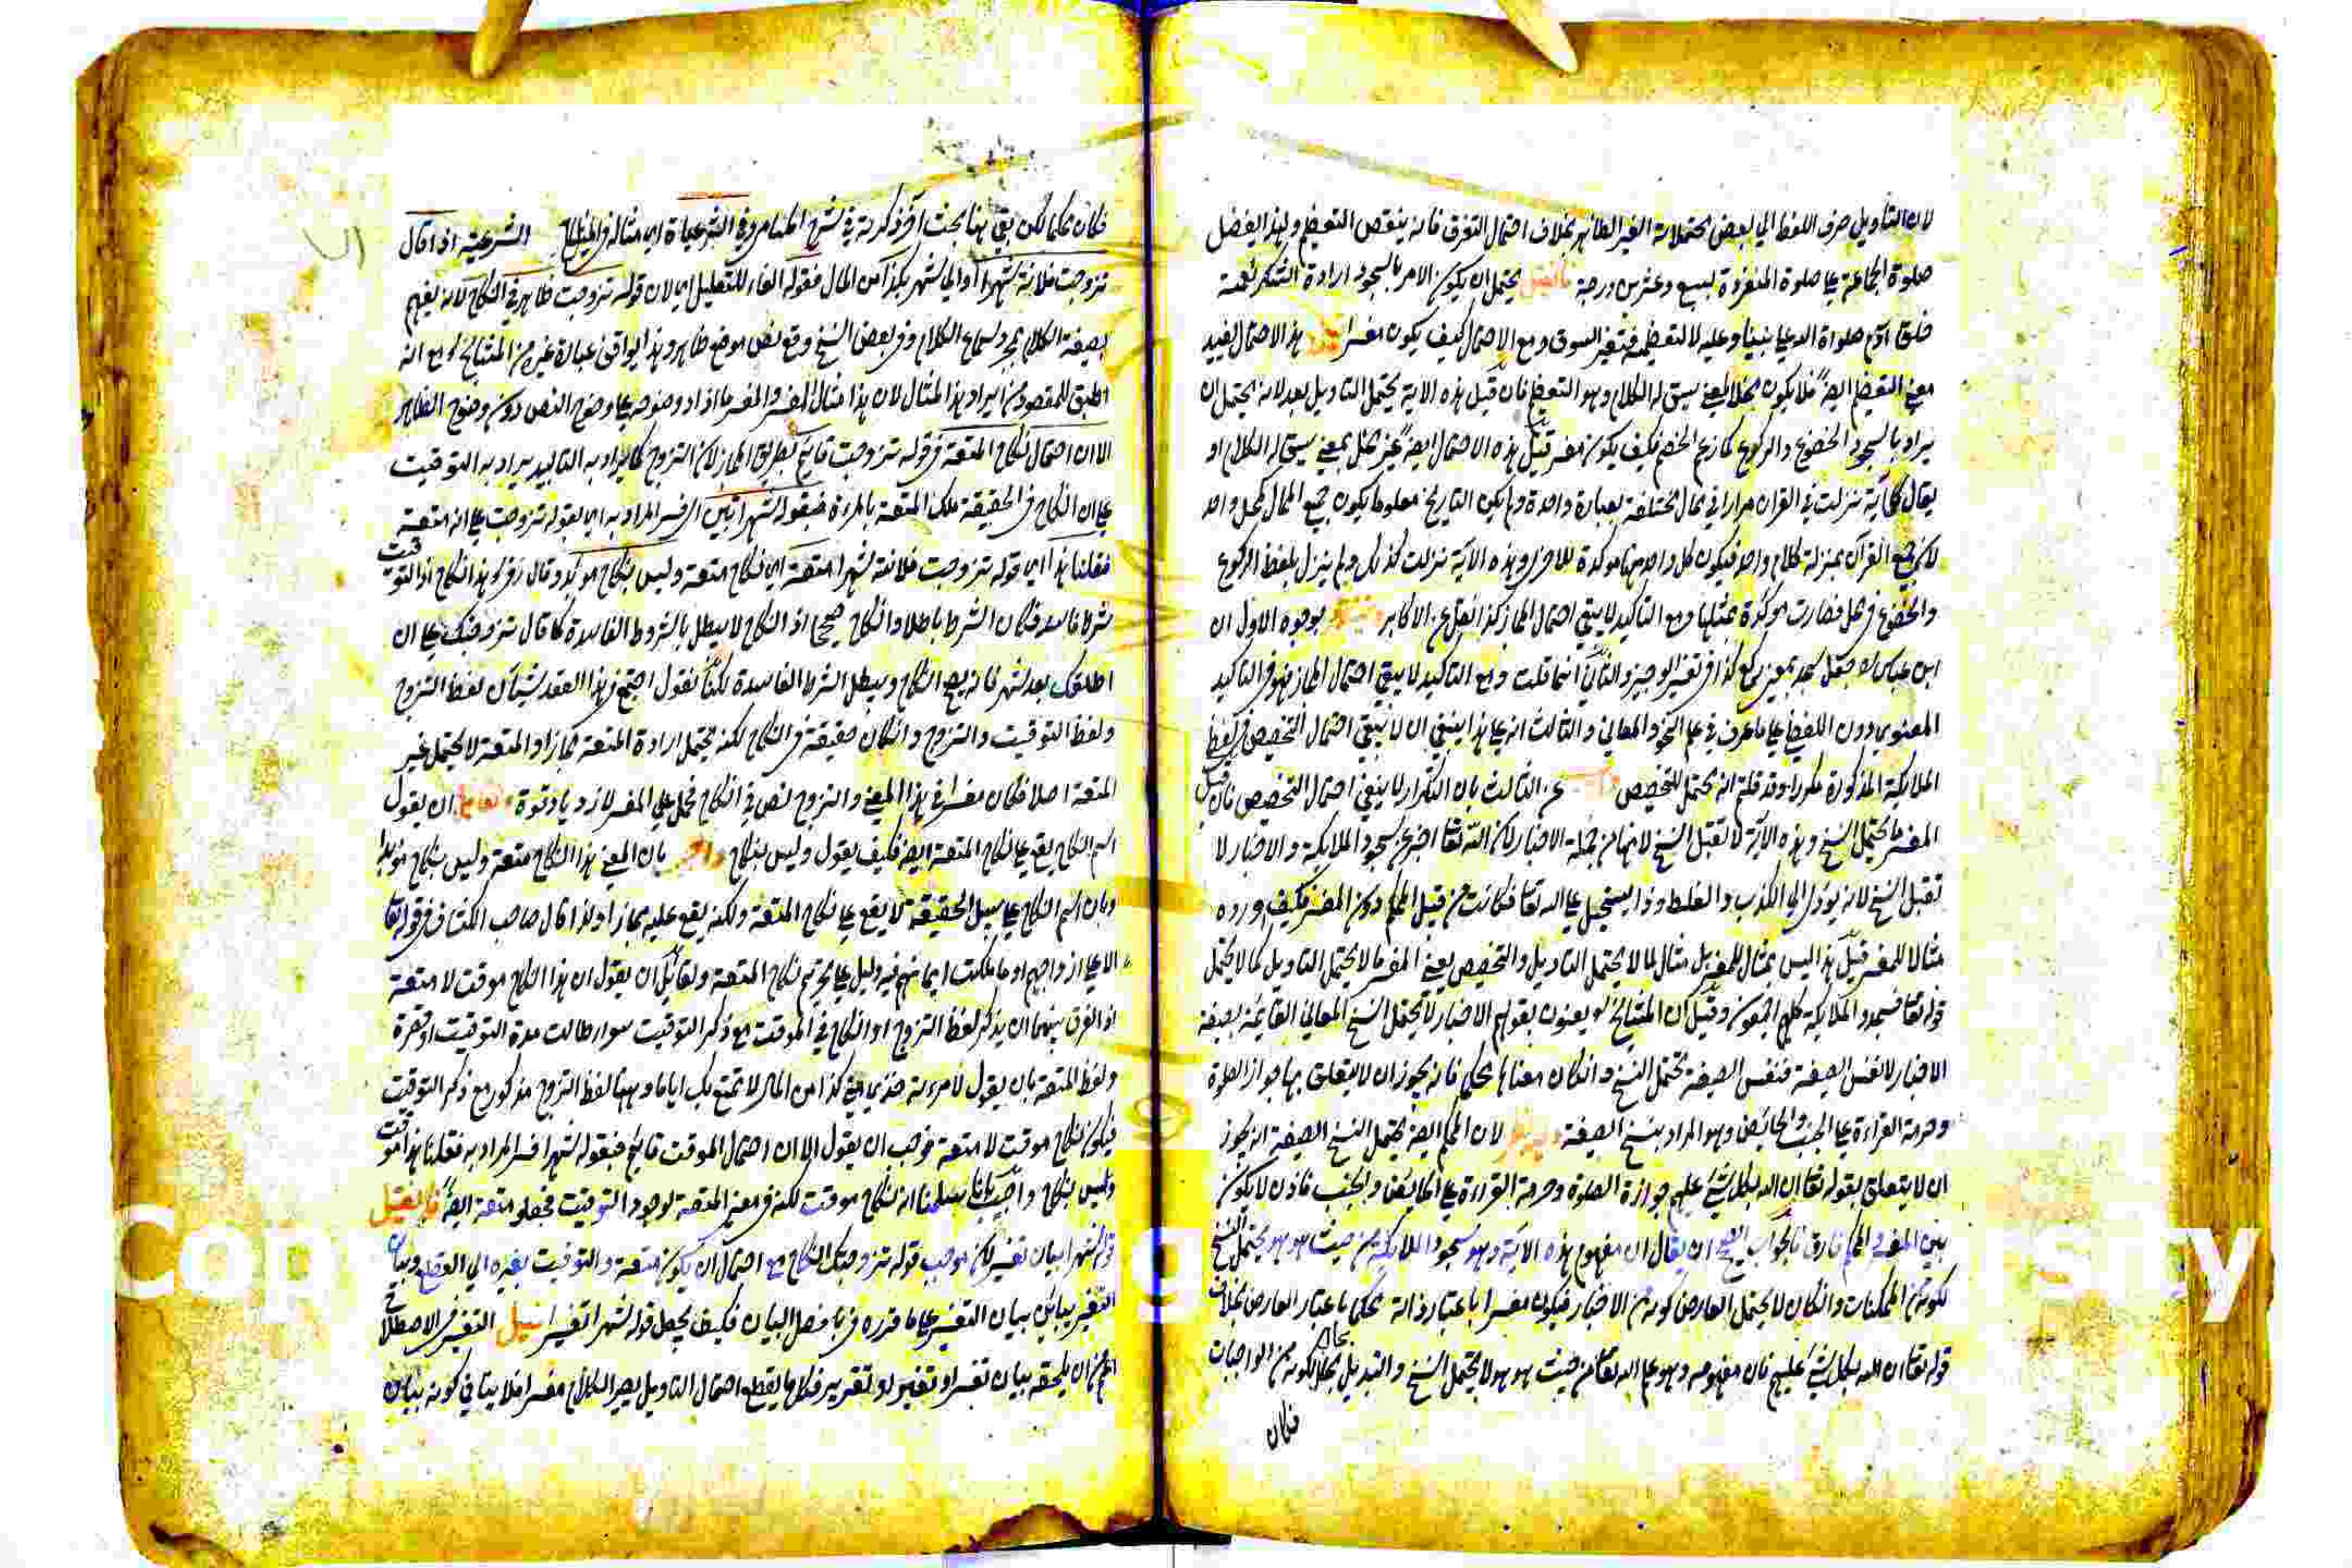 لان التأويل صرف اللفظ الي بعض محتملاته الغير الظاهر بخلاف احتمال التفرق فانه ينقص التعظيم ولهذا يفضل
صلوة الجماعة علي صلوة المنفردة بسبع وعشرين درجة فان قيل يحتمل ان يكون الامر بالسجود ارادة الشكر لنعمة
خلق آدم صلواة الله علي نبينا وعليه لا لتعظيمه فتغير السوق ومع الاحتمال كيف يكون مفسرا هذا الاحتمال يفيد
معني التعظيم ايضا فلا يكون مخلا لمعني سيق له الكلام وهو التعظيم فان قيل هذه الآية يحتمل التاويل بعد لانه يحتمل ان
يراد بالسجود الخضوع والركوع كما زعم الخصم فكيف يكون مفسرا قيل هذه الاحتمال ايضا غير مخل بمعني سيق له الكلام او
يقال كل آية نزلت في القرآن مرارا في محال مختلفة بعبارة واحدة ولم يكن التاريخ معلوما يكون جميع المحال كمحل واحد
لان جميع القرآن بمنزلة كلام واحد فيكون كل واحد منها موكدة للاخري وهذه الآية نزلت كذلك ولم ينزل بلفظ الركوع
والخضوع في محل فصارت موكدة بمثلها ومع التاكيد لا يبقي احتمال المجاز كذا نقل عن الاكابر بوجوه الاول ان
ابن عباس جعل سجد بمعني ركع كذا في تفسير الوجيز والثاني انما قلت ومع التاكيد لا يبقي احتمال المجاز فهو في التاكيد
المعنوي دون اللفظي علي ما عرف في علم النحو والمعاني والثالث انه علي هذا ينبغي ان لا يبقي احتمال التخصيص في لفظ
الملايكة المذكورة مكررا وقد قلتم انه يحتمل التخصيص عن الثالث بان التكرار لا ينفي احتمال التخصيص فان قيل
المفسر ما يحتمل النسخ وهذه الآية لا تقبل النسخ لانها من جملة الاخبار لان الله تعا اخبر عن سجود الملايكة والاخبار لا
تقبل النسخ لانه يودي الي الكذب والغلط وذا يستحيل علي الله تعا فكانت من قبيل المحكم دون المفسر فكيف اورده
مثالا للمفسر قيل هذا ليس بمثال للمفسر بل مثال لما لا يحتمل التاويل والتخصيص يعني المفسر ما لا يحتمل التاويل كما لا يحتمل
قوله تعا فسجد الملايكة كلهم اجمعون وقيل ان المشايخ يعنون بقولهم الاخبار لا يحتمل النسخ المعاني القائمة بصيغة
الاخبار لا نفس الصيغة فنفس الصيغة تحتمل النسخ وان كان معناها محكما فانه يجوز ان لا يتعلق بها جواز الصلوة
وحرمة القراءة علي الجنب والحايض وهو المراد بنسخ الصيغة لان المحكم ايضا يحتمل النسخ الصيغة انه يجوز
ان لا يتعلق بقوله تعا ان الله بكل شئ عليم جوازة الصلوة وحرمة القراءة علي الحايض والجنب فاذن لا يكون
بين المفسر والمحكم فارق فالجواب الصحيح ان يقال ان مفهوم هذه الاية وهو سجود الملايكة من حيث هو هو يحتمل النسخ
لكونه من الممكنات وانكان لا يحتمل العارض كونه من الاخبار فيكون مفسرا باعتبار ذاته محكما باعتبار العارض بخلاف
قوله تعا ان الله بكل شئ عليم فان مفهومه وهو علم الله تعا من حيث هو هو لا يحتمل النسخ والتبديل بحال لكونه من الواجبات
فكان
فكان محكما لكن بقي هنا بحث آخر ذكرته في شرح المنار وفي الشرعيات اي مثاله في المسائل الشرعية اذا قال
تزوجت فلانة شهرا او الي شهر بكذا من المال فقوله الفاء للتعليل اي لان قوله تزوجت ظاهر في النكاح لانه يفهم
بصيغة الكلام بمجرد سماع الكلام وفي بعض النسخ وقع نص موضع ظاهر وهذا يوافق عبارة غيره من المشايخ مع انه
اطبق للمقصود من ايراد هذا المثال لان هذا مثال المفسر والمفسر ما ازداد وضوحه علي وضوح النص دون وضوح الظاهر
الا ان احتمال نكاح المتعة في قوله تزوجت قايم بطريق المجاز لان التزوج كما يراد به التابيد يراد به التوقيت
علي ان النكاح في الحقيقة ملك المتعة بالمرءة فبقوله شهرا تبين اي فسر المراد به اي بقوله تزوجت علي انه متعة
فقلنا هذا اي قوله تزوجت فلانة شهرا متعة اي نكاح متعة وليس بنكاح موبد وقال زفر هذا نكاح اذ التوقيت
شرط فاسد فكان الشرط باطلا والنكاح صحيح اذ النكاح لا يبطل بالشروط الفاسدة كما قال تزوجتك علي ان
اطلقك بعد شهر فانه يصح النكاح ويبطل الشرط الفاسدة لكنا نقول اجتمع في هذا العقد شيآن لفظ التزوج
ولفظ التوقيت والتزوج وانكان حقيقة في النكاح لكنه يحتمل ارادة المتعة مجازا والمتعة لا يحتمل غير
المتعة اصلا فكان مفسرا في هذا المعني والتزوج نص في النكاح فحمل علي المفسر لازدياد قوة ان يقول
اسم النكاح يقع علي نكاح المتعة ايضا فكيف يقول وليس بنكاح بان المعني هذا النكاح متعة وليس بنكاح موبد
وبان اسم النكاح علي سبيل الحقيقة لا يقع علي نكاح المتعة ولكنه يقع عليه مجازا ولذا قال صاحب الكشاف في قوله تعا
الا علي ازواجهم او ما ملكت ايمانهم فيه دليل علي تحريم نكاح المتعة ولقائل ان يقول ان هذا النكاح موقت لا متعة
اذ الفرق بينهما ان يذكر لفظ التزوج او النكاح في الموقت مع ذكر التوقيت سواء طالت مدة التوقيت او قصرة
ولفظ المتعة بان يقول لامرءة خذي مني كذا من المال لاتمتع بك اياما وههنا لفظ التزوج مذكور مع ذكر التوقيت
فيكون نكاح موقت لا متعة فوجب ان يقول الا ان احتمال الموقت قايم فبقوله شهرا فسر المراد به فقلنا هذا موقت
وليس بنكاح واجيب بانا سلمنا انه نكاح موقت لكنه في معني المتعة لوجود التوقيت فجعلوه متعة ايضا فان قيل
قوله شهرا بيان تغيير لان موجب قوله تزوجتك النكاح مع احتمال ان يكون متعة والتوقيت يغيره الي القطع وبيان
التغيير يباين بيان التفسير علي ما قرره في با فصل البيان فكيف يجعل قوله شهرا تفسيرا قيل التفسير في الاصطلاح
اعم من ان يلحقه بيان تفسير او تغيير او تقرير فكل ما يقطع احتمال التاويل يصير الكلام مفسرا فلا ينافي كونه بيان